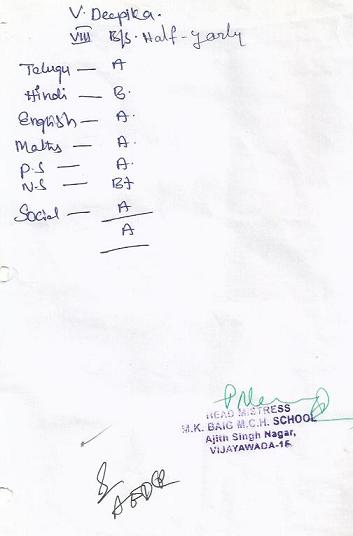 V. Deepika.
VIII B/S. Half-yarly
Telugu — A
Hindi — B.
English — A.
Maths — A.
P.S — A.
N.S — B+
Social — A
A
HEAD MISTRESS
M.K. BAIG M.C.H. SCHOOL
Ajith Singh Nagar,
VIJAYAWADA-15.